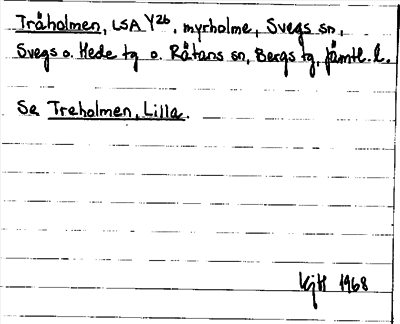 Tråholmen, LSA Y2b, myrholme, Svegs sn,
Svegs o. Hede tg o. Råtans sn, Bergs tg, Jämtl. l.
Se Treholmen, Lilla.
KjH 1968